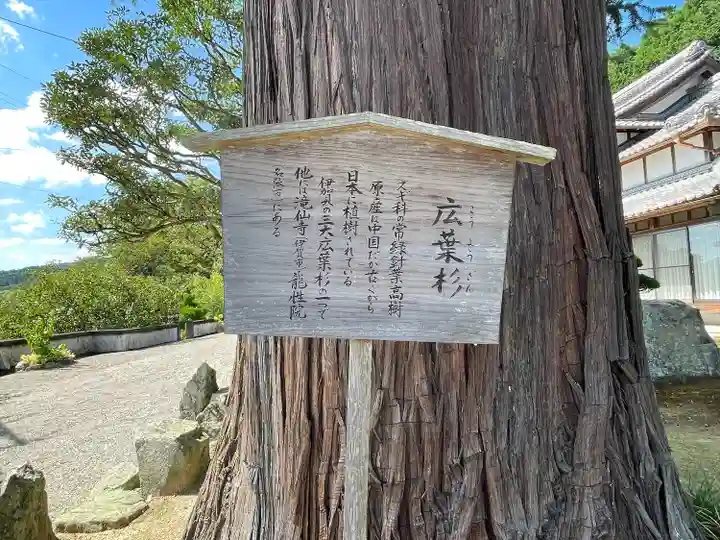 広葉杉
こうようさん
スギ科の常緑針葉高樹
原産は中国だが古くから
日本に植樹されている
伊賀の三大広葉杉の一つで
他には滝仙寺(伊賀市)龍性院
名張市にある